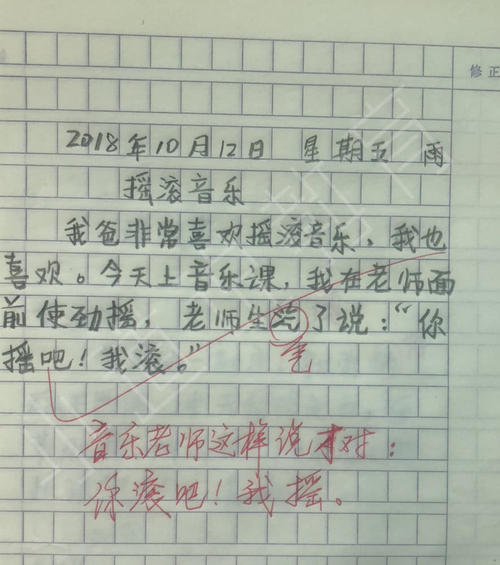 修正
2018年10月12日 星期五 雨
摇滚音乐
我爸非常喜欢摇滚音乐,我也
喜欢。今天上音乐课,我在老师面
前使劲摇,老师生完了说:“你
气
摇吧!我滚。”
音乐老师这样说才对:
你滚吧!我摇。